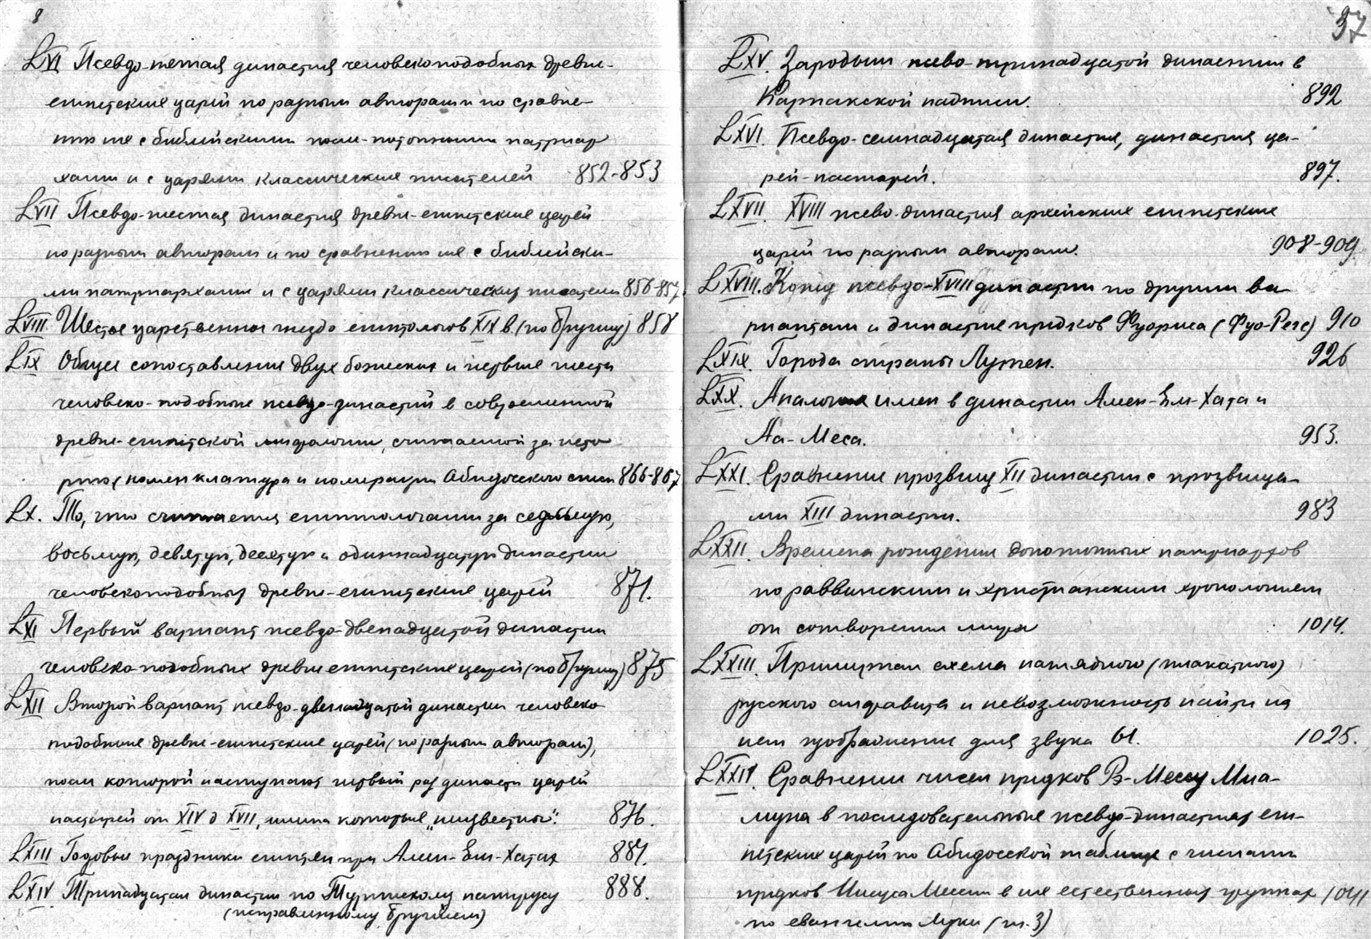 8
LVI Псевдо-пятая династия человекоподобных древне-
египетских царей по разным авторам и по сравне-
нию их с библейскими после-потопными патриар
хами и с царями классических писателей 852-853
LVII Псевдо-шестая династия древне-египетских царей
по разным авторам и по сравнению их с библейски-
ми патриархами и с царями классических писателей 856-857
LVIII Шестое царственное гнездо египтологов XIX в. (по Бругшу) 858
LIX Общее сопоставление двух божеских и первых шести
человеко-подобных псевдо-династий в современной
древне-египетской мифологии, считаемой за исто
рию (номенклатура и нумерация Абидосского списка 866-867
LX. То, что считается египтологами за седьмую,
восьмую, девятую, десятую и одиннадцатую династии
человекоподобных древне-египетских царей 871.
LXI Первый вариант псевдо-двенадцатой династии
человеко-подобных древне египетских царей (по Бругшу) 875
LXII Второй вариант псевдо-двенадцатой династии человеко
подобных древне-египетских царей (по разным авторам),
после которой наступают первый раз династии царей
пастырей от XIV до XVII, имена которых „неизвестны". 876.
LXIII Годовые праздники египтян при Амен-Ем-Хатах 881.
LXIV Тринадцатая династия по Туринскому папирусу 888.
(исправленному Бругшем)
37
LXV. Зародыши псево-тринадцатой династии в
Карнакской надписи. 892
LXVI. Псевдо-семнадцатая династия, династия ца-
рей-пастырей. 897.
LXVII. XVIII псево-династия арийских египетских
царей по разным авторам. 908-909.
LXVIII. Конец псевдо-XVIII династии по другим ва-
риантам и династия предков Фуориса (Фуо-Рсес) 910
LXIX. Города страны Лутен. 926
LXX. Аналогия имен в династии Амен-Ем-Хата и
Аа-Меса. 953.
LXXI. Сравнение прозвищ XII династии с прозвища-
ми XIII династии. 983
LXXII. Времена рождения допотопных патриархов
по раввинским и христианским хронологиям
от сотворения мира 1014.
LXXIII. Примерная схема наглядного (плакатного)
русского алфавита и невозможность найти на
нем изображение для звука Ы. 1025.
LXXIV. Сравнение чисел предков Рэ-Мессу Миа-
муна в последовательных псевдо-династиях еги-
петских царей по Абидосской таблице с числами
предков Иисуса Мессии в их естественных группах 1041
по евангелию Луки (гл. 3)